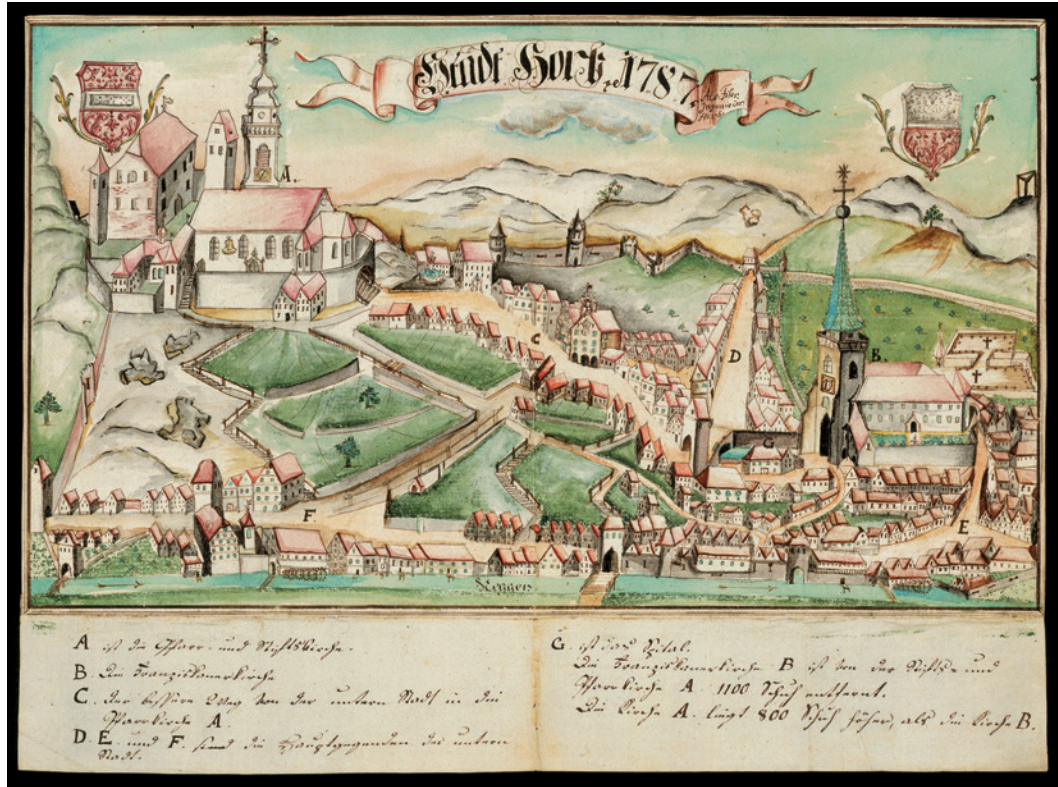 Stadt Horb 1787.
A.
C
D
B.
G
F
E
A ist die Pfarr- und Stiftskirche.
B. Die Franziskanerkirche
C. der bessere Weg von der untern Stadt in die
Pfarrkirche A.
D. E. und F. sind die Hauptgegenden der untern
Stadt.
G. ist das Spital.
Die Franziskanerkirche B ist von der Stifts- und
Pfarrkirche A. 1100 Schuh entfernt.
Die Kirche A. liegt 800 Schuh höher, als die Kirche B.